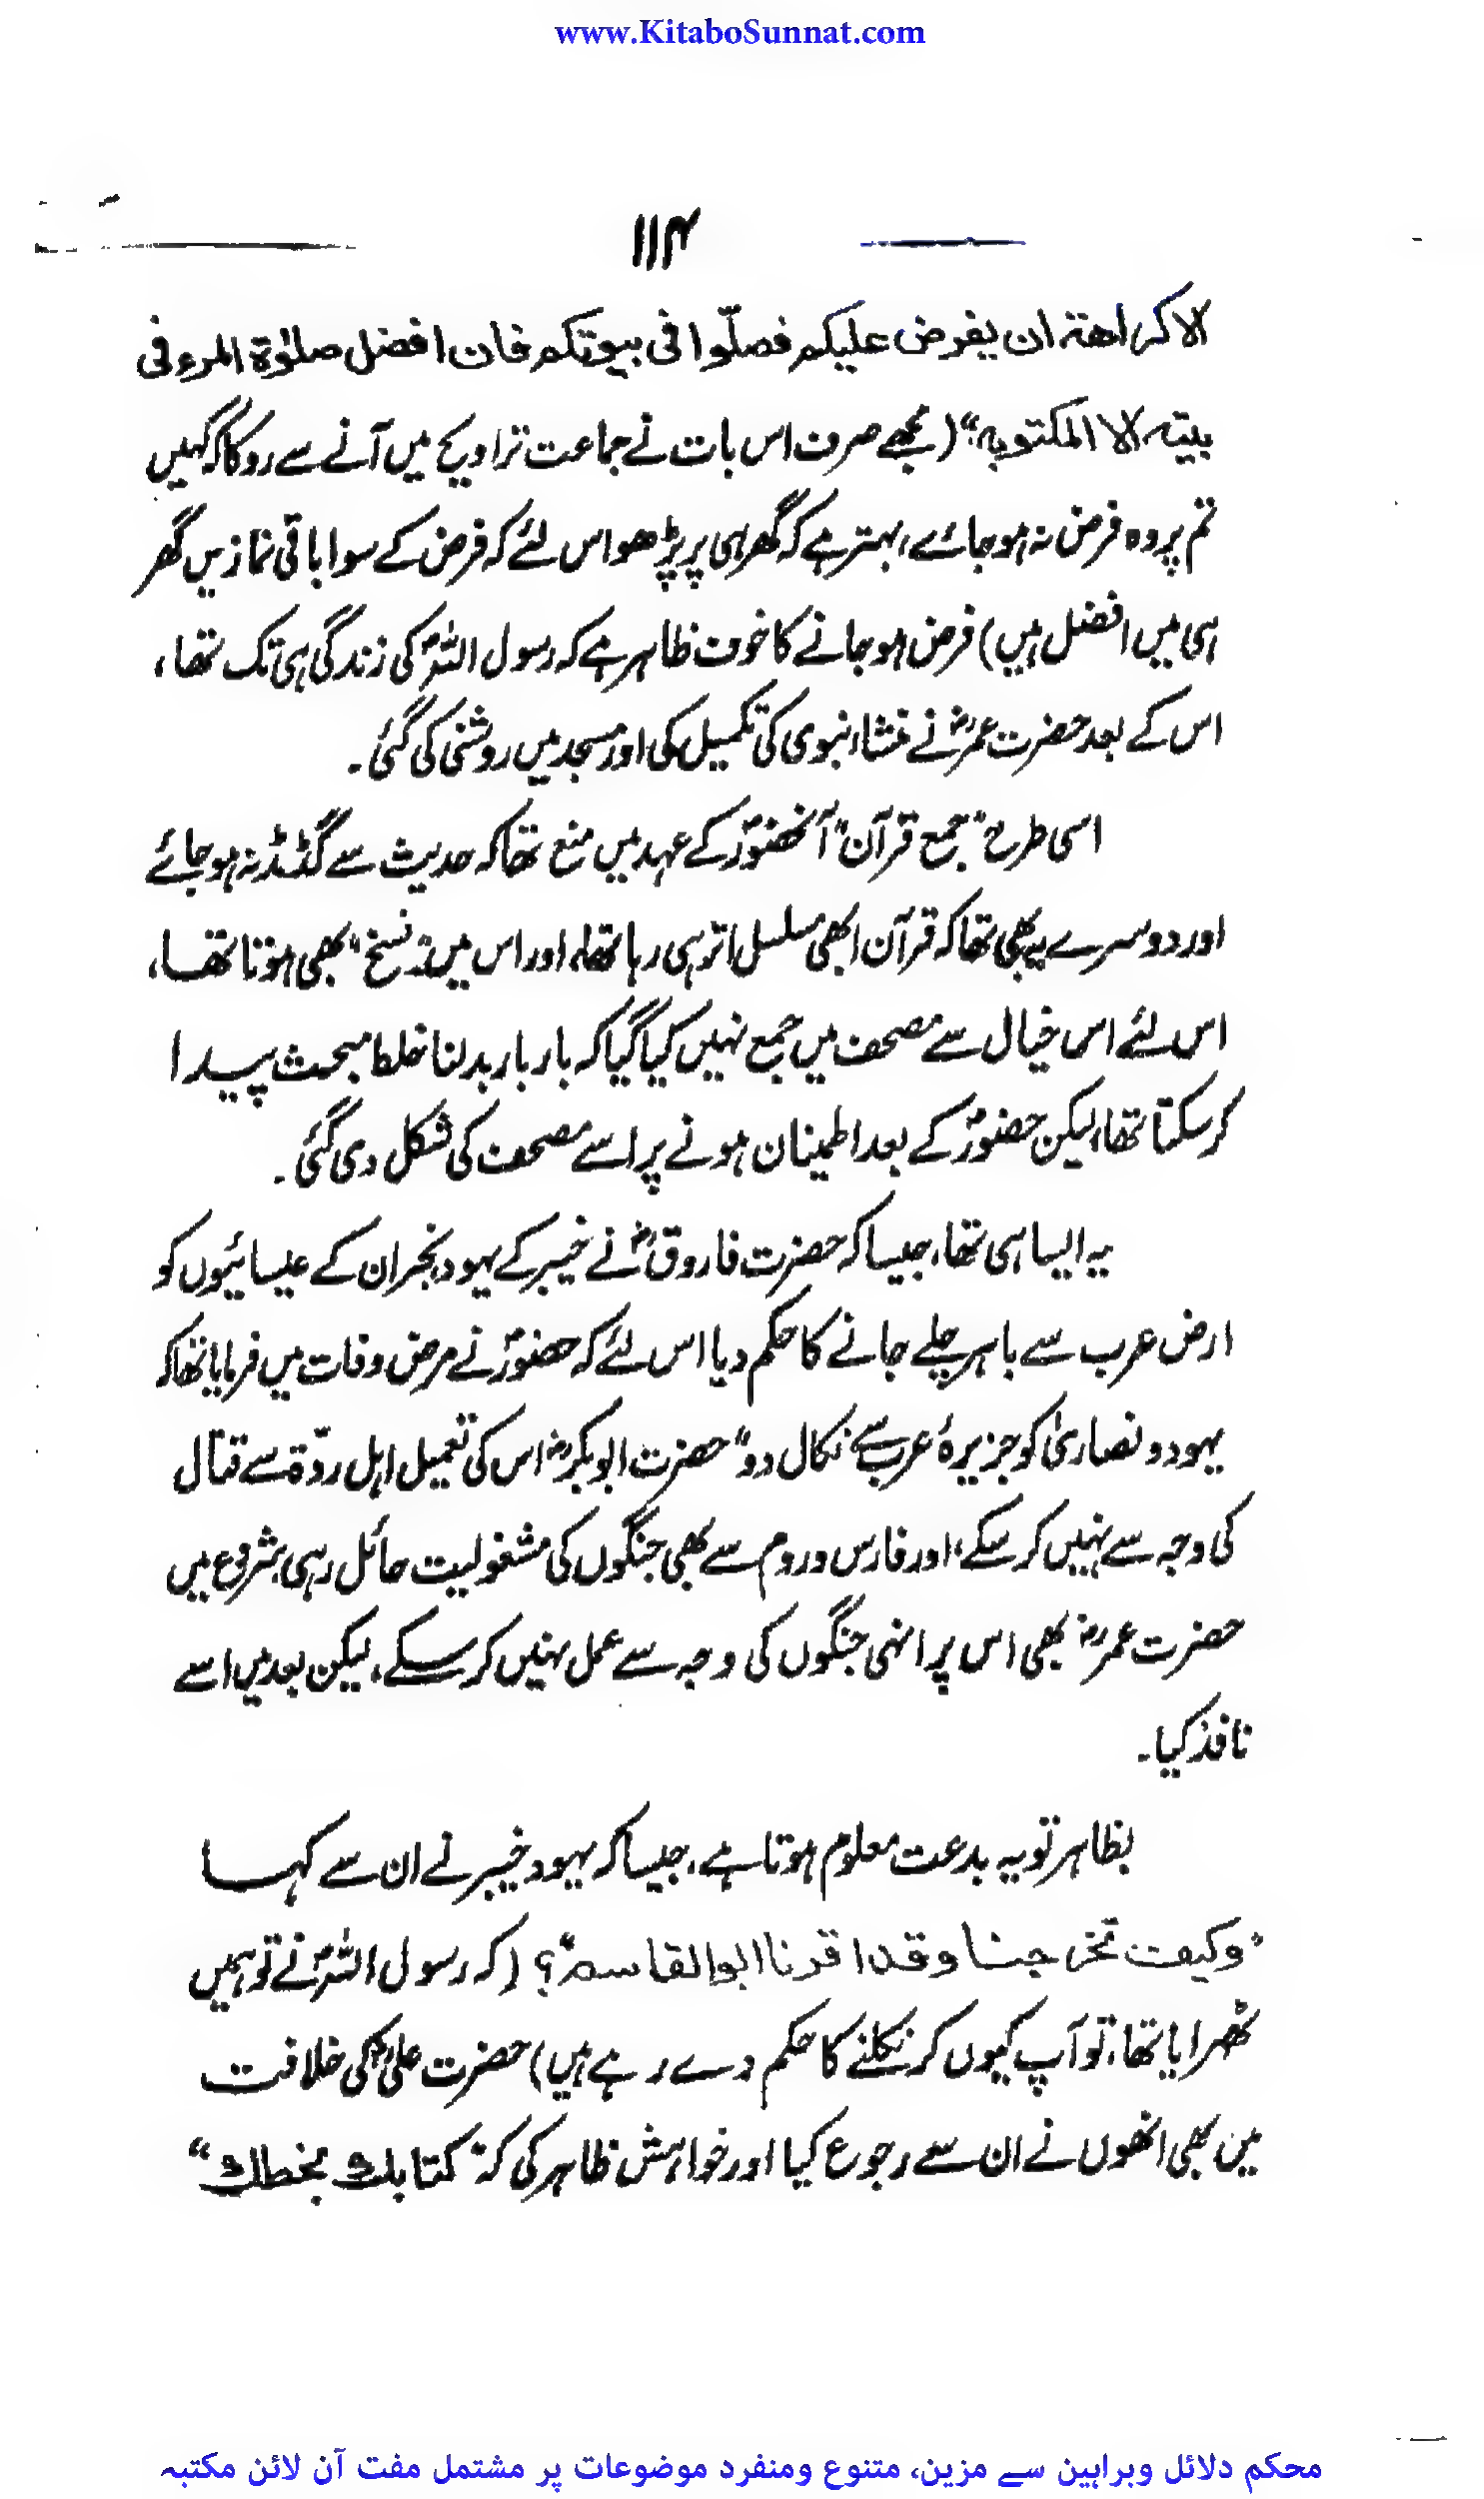 www.KitaboSunnat.com
۱۱۴
الا كراهة ان يفرض عليكم فصلّوا فى بيوتكم فان افضل صلوٰة المرء فى
بيته الا المكتوبه“ (مجھے صرف اس بات نے جماعت تراویح میں آنے سے روکا کہ کہیں
تم پر وہ فرض نہ ہو جائے، بہتر ہے کہ گھر ہی پر پڑھو اس لئے کہ فرض کے سوا باقی نمازیں گھر
ہی میں افضل ہیں) فرض ہو جانے کا خوف ظاہر ہے کہ رسول اللہؐ کی زندگی ہی تک تھا،
اس کے بعد حضرت عمرؓ نے منشاء نبوی کی تکمیل کی اور مسجد میں روشنی کی گئی۔
اسی طرح ”جمع قرآن“ آنحضورؐ کے عہد میں منع تھا کہ حدیث سے گڈمڈ نہ ہو جائے
اور دوسرے یہ بھی تھا کہ قرآن ابھی مسلسل اتر ہی رہا تھا، اور اس میں ”نسخ“ بھی ہوتا تھا،
اس لئے اس خیال سے مصحف میں جمع نہیں کیا گیا کہ بار بار بدلنا خلط مبحث پیدا
کر سکتا تھا، لیکن حضورؐ کے بعد اطمینان ہونے پر اسے مصحف کی شکل دی گئی۔
یہ ایسا ہی تھا، جیسا کہ حضرت فاروقؓ نے خیبر کے یہود، نجران کے عیسائیوں کو
ارض عرب سے باہر چلے جانے کا حکم دیا اس لئے کہ حضورؐ نے مرض وفات میں فرمایا تھا کہ
یہود و نصاریٰ کو جزیرۂ عرب سے نکال دو“ حضرت ابوبکرؓ اس کی تعمیل اہل ردّۃ سے قتال
کی وجہ سے نہیں کر سکے، اور فارس و روم سے بھی جنگوں کی مشغولیت حائل رہی، شروع میں
حضرت عمرؓ بھی اس پر انہی جنگوں کی وجہ سے عمل نہیں کر سکے، لیکن بعد میں اسے
نافذ کیا۔
بظاہر تو یہ بدعت معلوم ہوتا ہے، جیسا کہ یہود خیبر نے ان سے کہا
”وكيف تخرجنا وقد اقرنا ابو القاسم“؟ (کہ رسول اللہؐ نے تو ہمیں
ٹھہرایا تھا، تو آپ کیوں کر نکلنے کا حکم دے رہے ہیں) حضرت علیؓ کی خلافت
میں بھی انھوں نے ان سے رجوع کیا اور خواہش ظاہر کی کہ ”كتابك بخطك“
محکم دلائل وبراہین سے مزین، متنوع ومنفرد موضوعات پر مشتمل مفت آن لائن مکتبہ